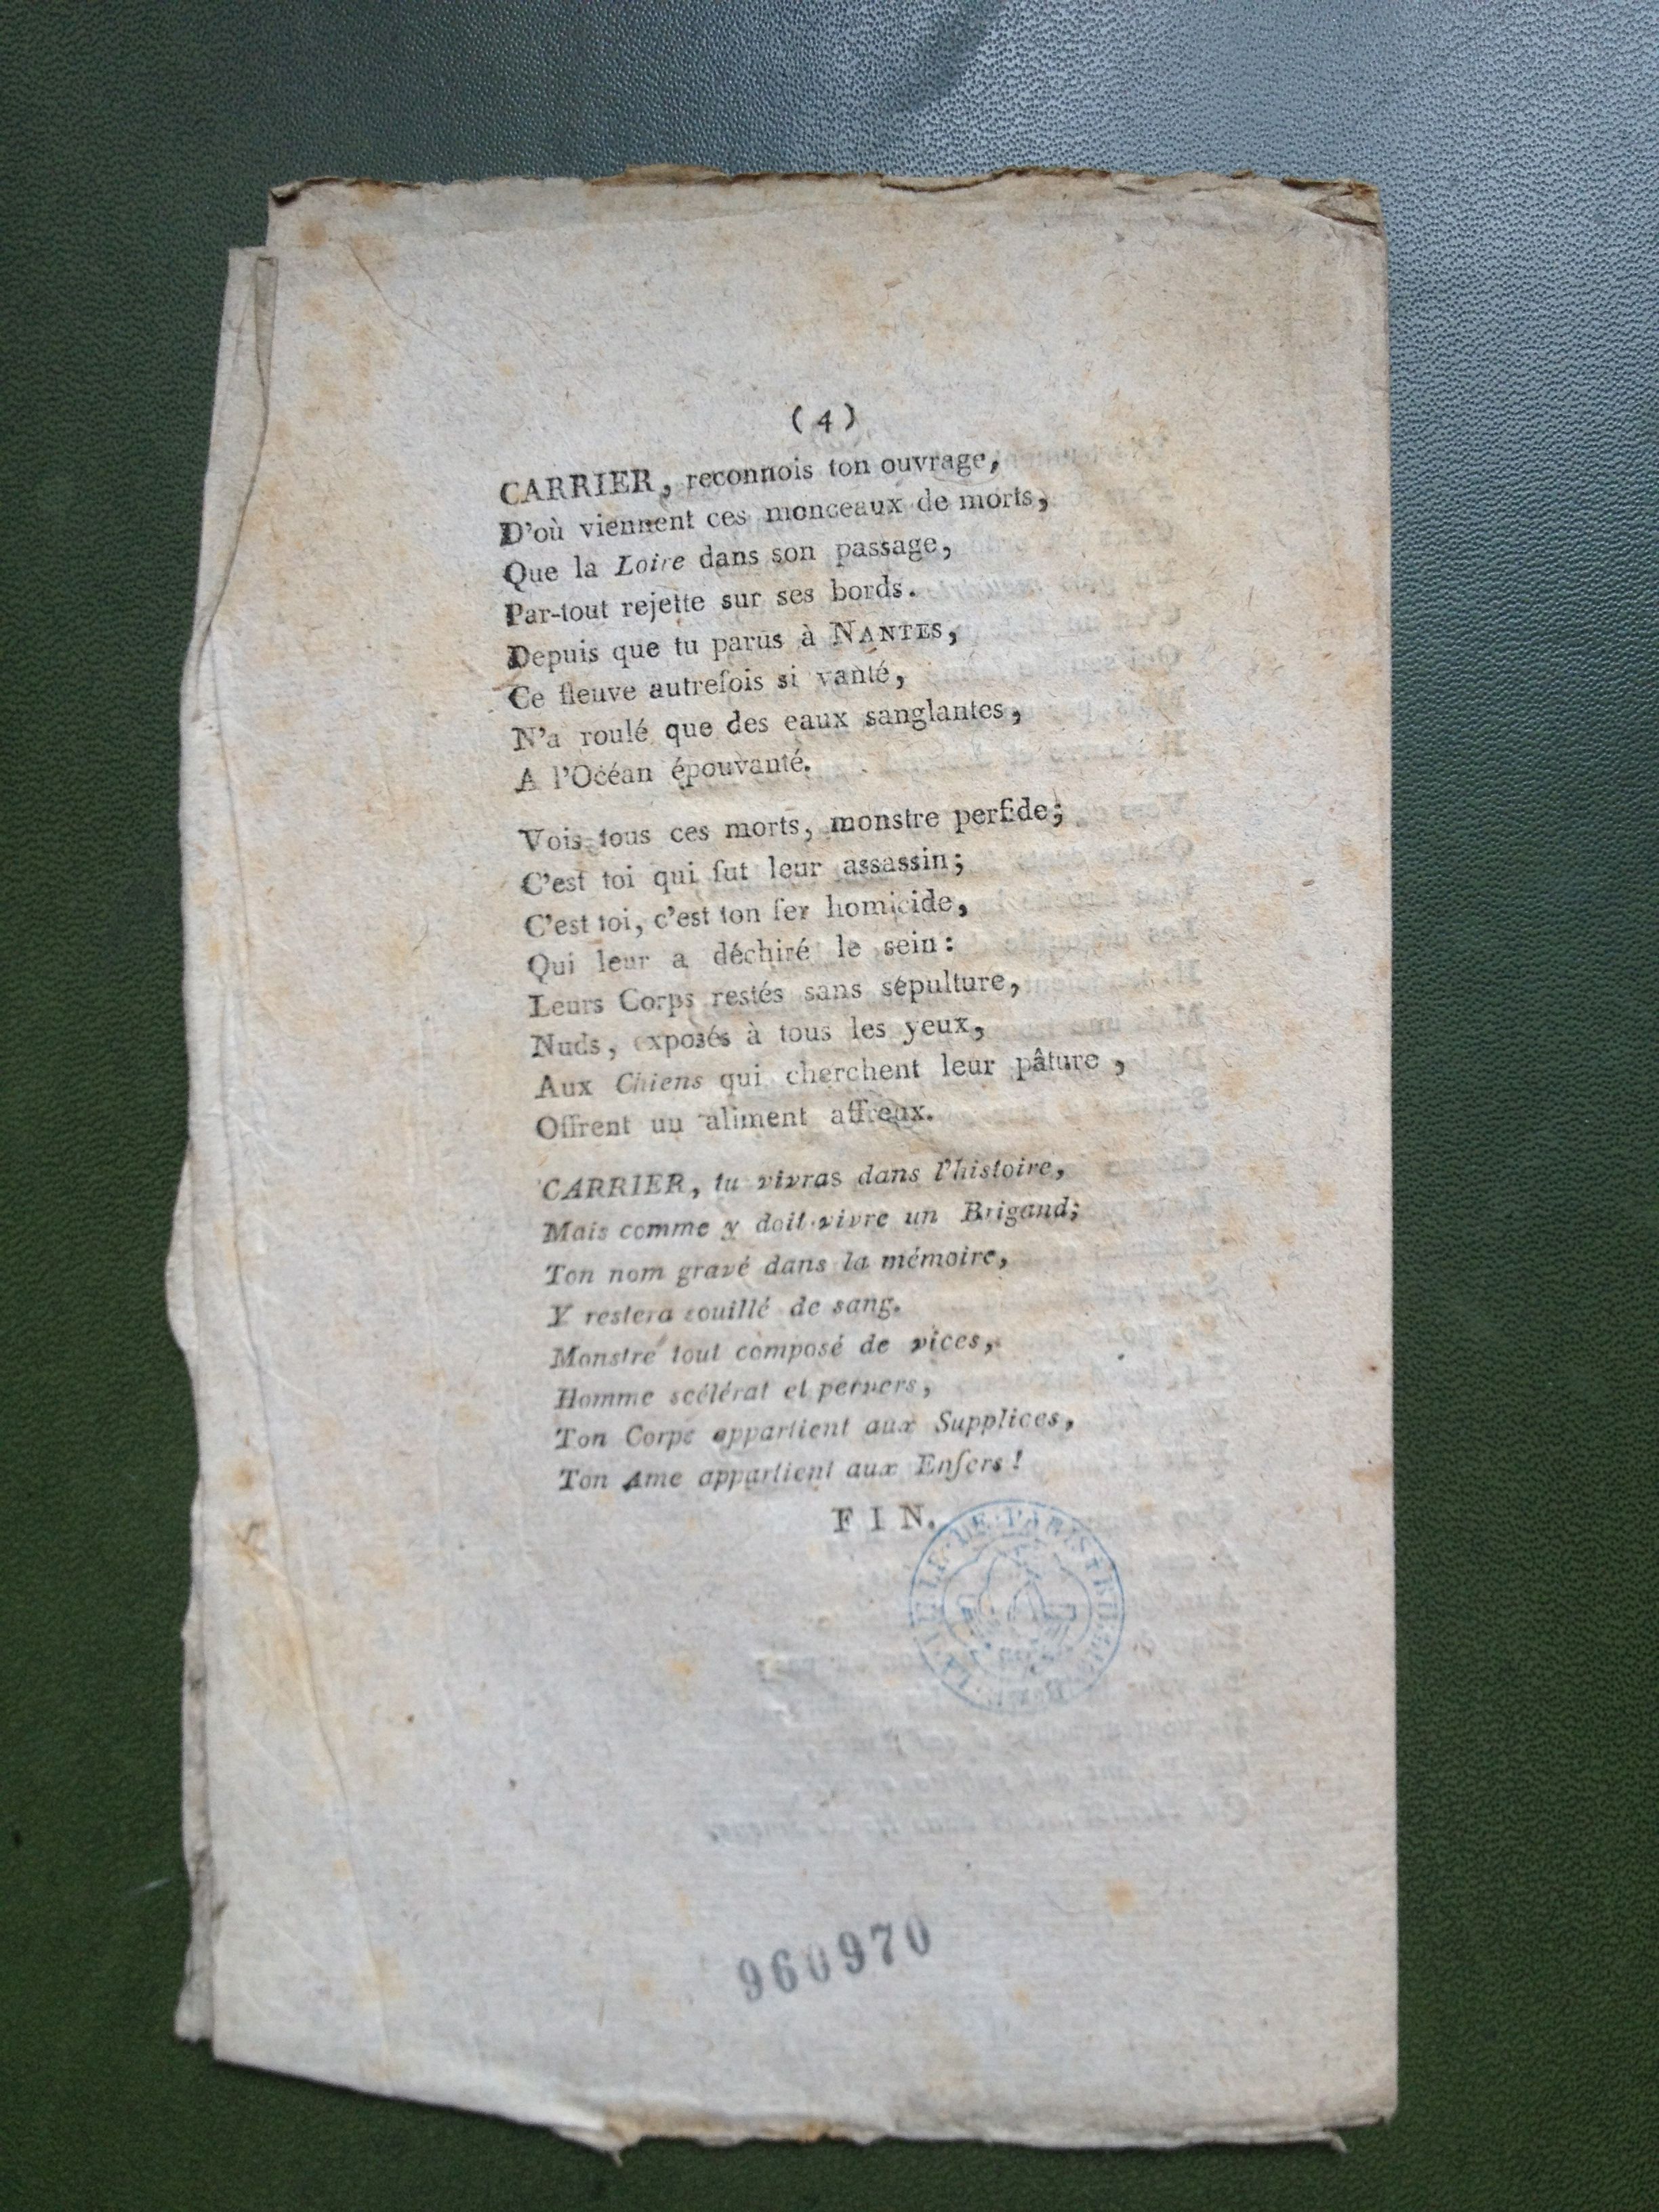 (4)
CARRIER, reconnois ton ouvrage,
D'où viennent ces monceaux de morts,
Que la Loire dans son passage,
Par-tout rejette sur ses bords.
Depuis que tu parus à NANTES,
Ce fleuve autrefois si vanté,
N'a roulé que des eaux sanglantes,
A l'Océan épouvanté.
Vois tous ces morts, monstre perfide;
C'est toi qui fut leur assassin;
C'est toi, c'est ton fer homicide,
Qui leur a déchiré le sein:
Leurs Corps restés sans sépulture,
Nuds, exposés à tous les yeux,
Aux Chiens qui cherchent leur pâture,
Offrent un aliment affreux.
CARRIER, tu vivras dans l'histoire,
Mais comme y doit vivre un Brigand;
Ton nom gravé dans la mémoire,
Y restera souillé de sang.
Monstre tout composé de vices,
Homme scélérat et pervers,
Ton Corps appartient aux Supplices,
Ton Ame appartient aux Enfers!
FIN.
DE PARIS
960970